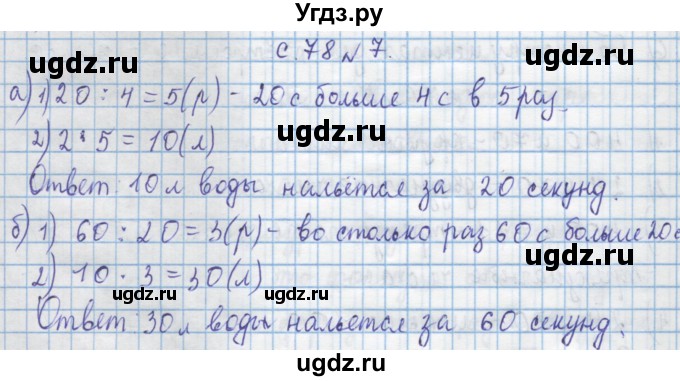 Угдз.ру
с. 78 № 7.
ugdz.ru ugdz.ru
а) 1) 20 : 4 = 5 (р) - 20 с больше 4 с в 5 раз.
2) 2 · 5 = 10 (л)
ugdz.ru ugdz.ru
Ответ: 10 л воды нальётся за 20 секунд.
ugdz.ru ugdz.ru
б) 1) 60 : 20 = 3 (р) - во столько раз 60 с больше 20 с
2) 10 · 3 = 30 (л)
ugdz.ru ugdz.ru
Ответ: 30 л воды нальется за 60 секунд.
ugdz.ru ugdz.ru